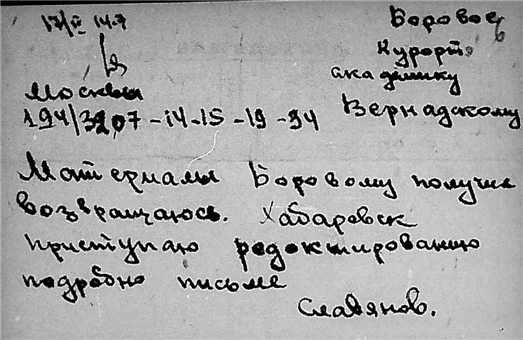 17/II 14.7
Боровое
Курорт
академику
Вернадскому
Москвы
194/3207-14-15-19-94
Материалы Боровому получил
возвращаюсь. Хабаровск
приступаю редоктированию
подробно письме
Славянов.